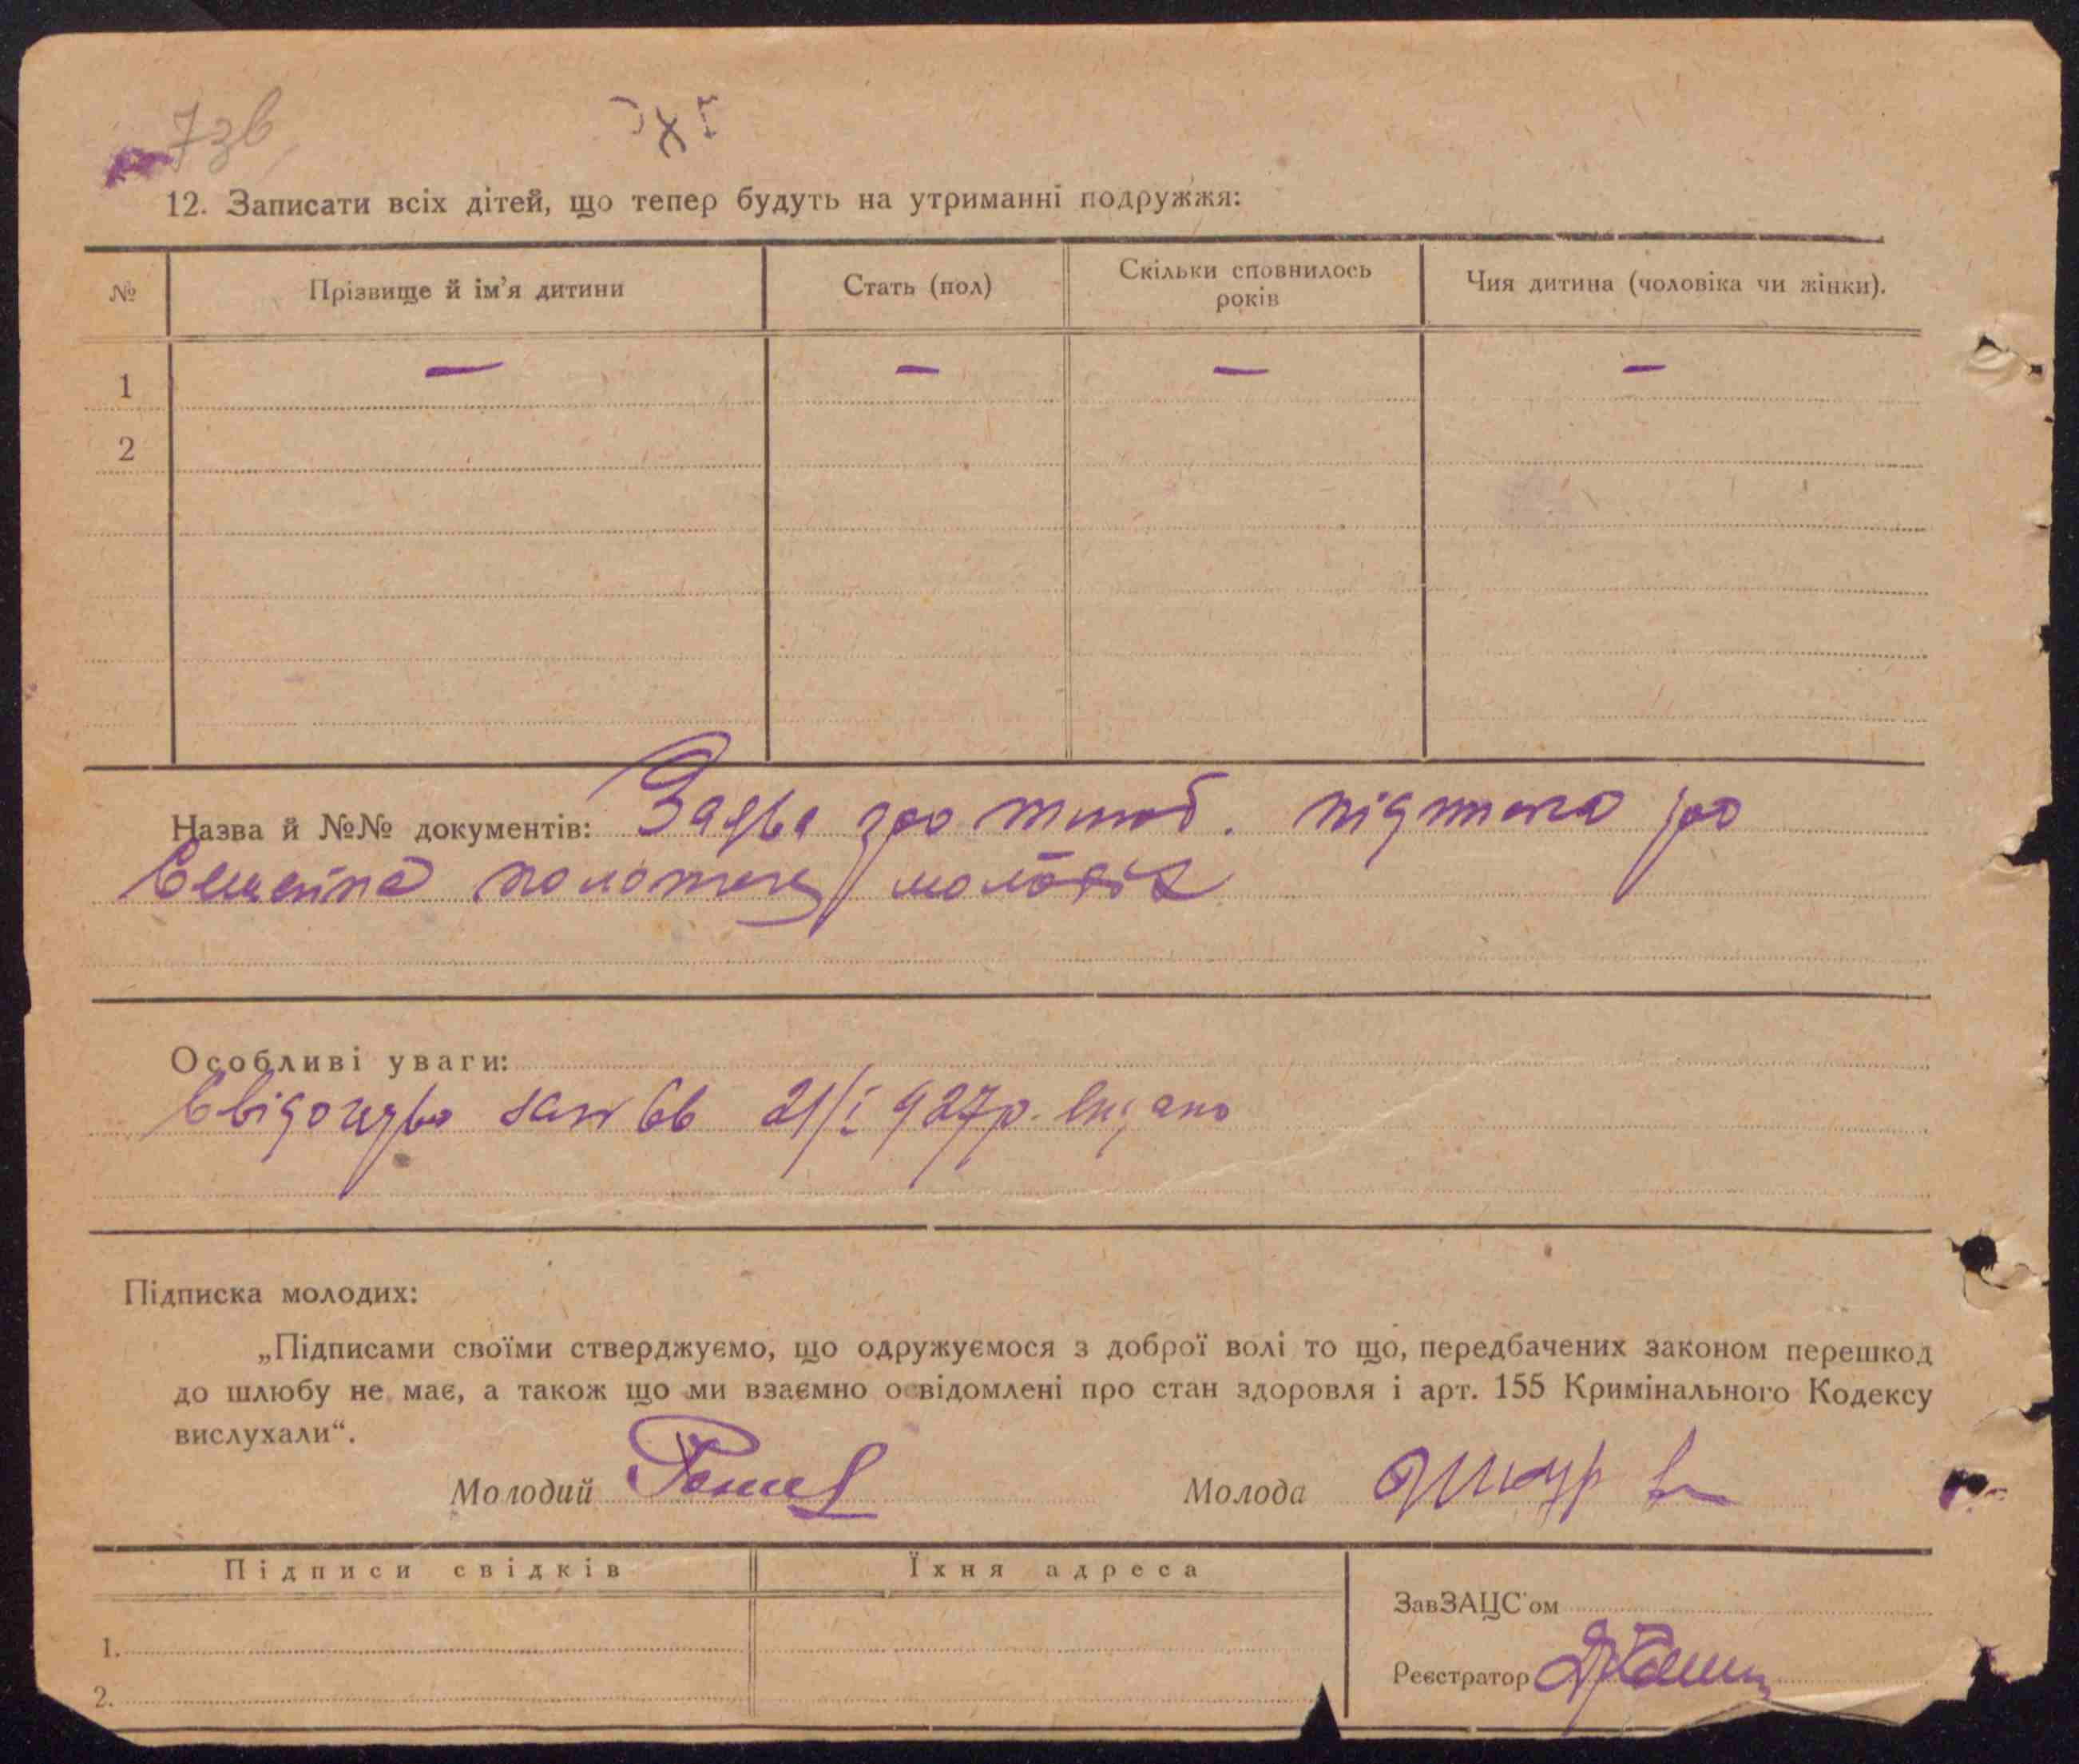 7зв
12. Записати всіх дітей, що тепер будуть на утриманні подружжя:
№ Прізвище й ім'я дитини Стать (пол) Скільки сповнилось років Чия дитина (чоловіка чи жінки).
1 — — — —
2
Назва й №№ документів: Заява про шлюб.
Особливі уваги:
Свідоцтво за № 66 21/I 927р. видано
Підписка молодих:
„Підписами своїми стверджуємо, що одружуємося з доброї волі то що, передбачених законом перешкод
до шлюбу не має, а також що ми взаємно освідомлені про стан здоровля і арт. 155 Кримінального Кодексу
вислухали“.
Молодий Молода
Підписи свідків Їхня адреса
ЗавЗАЦС'ом
1.
Реєстратор
2.